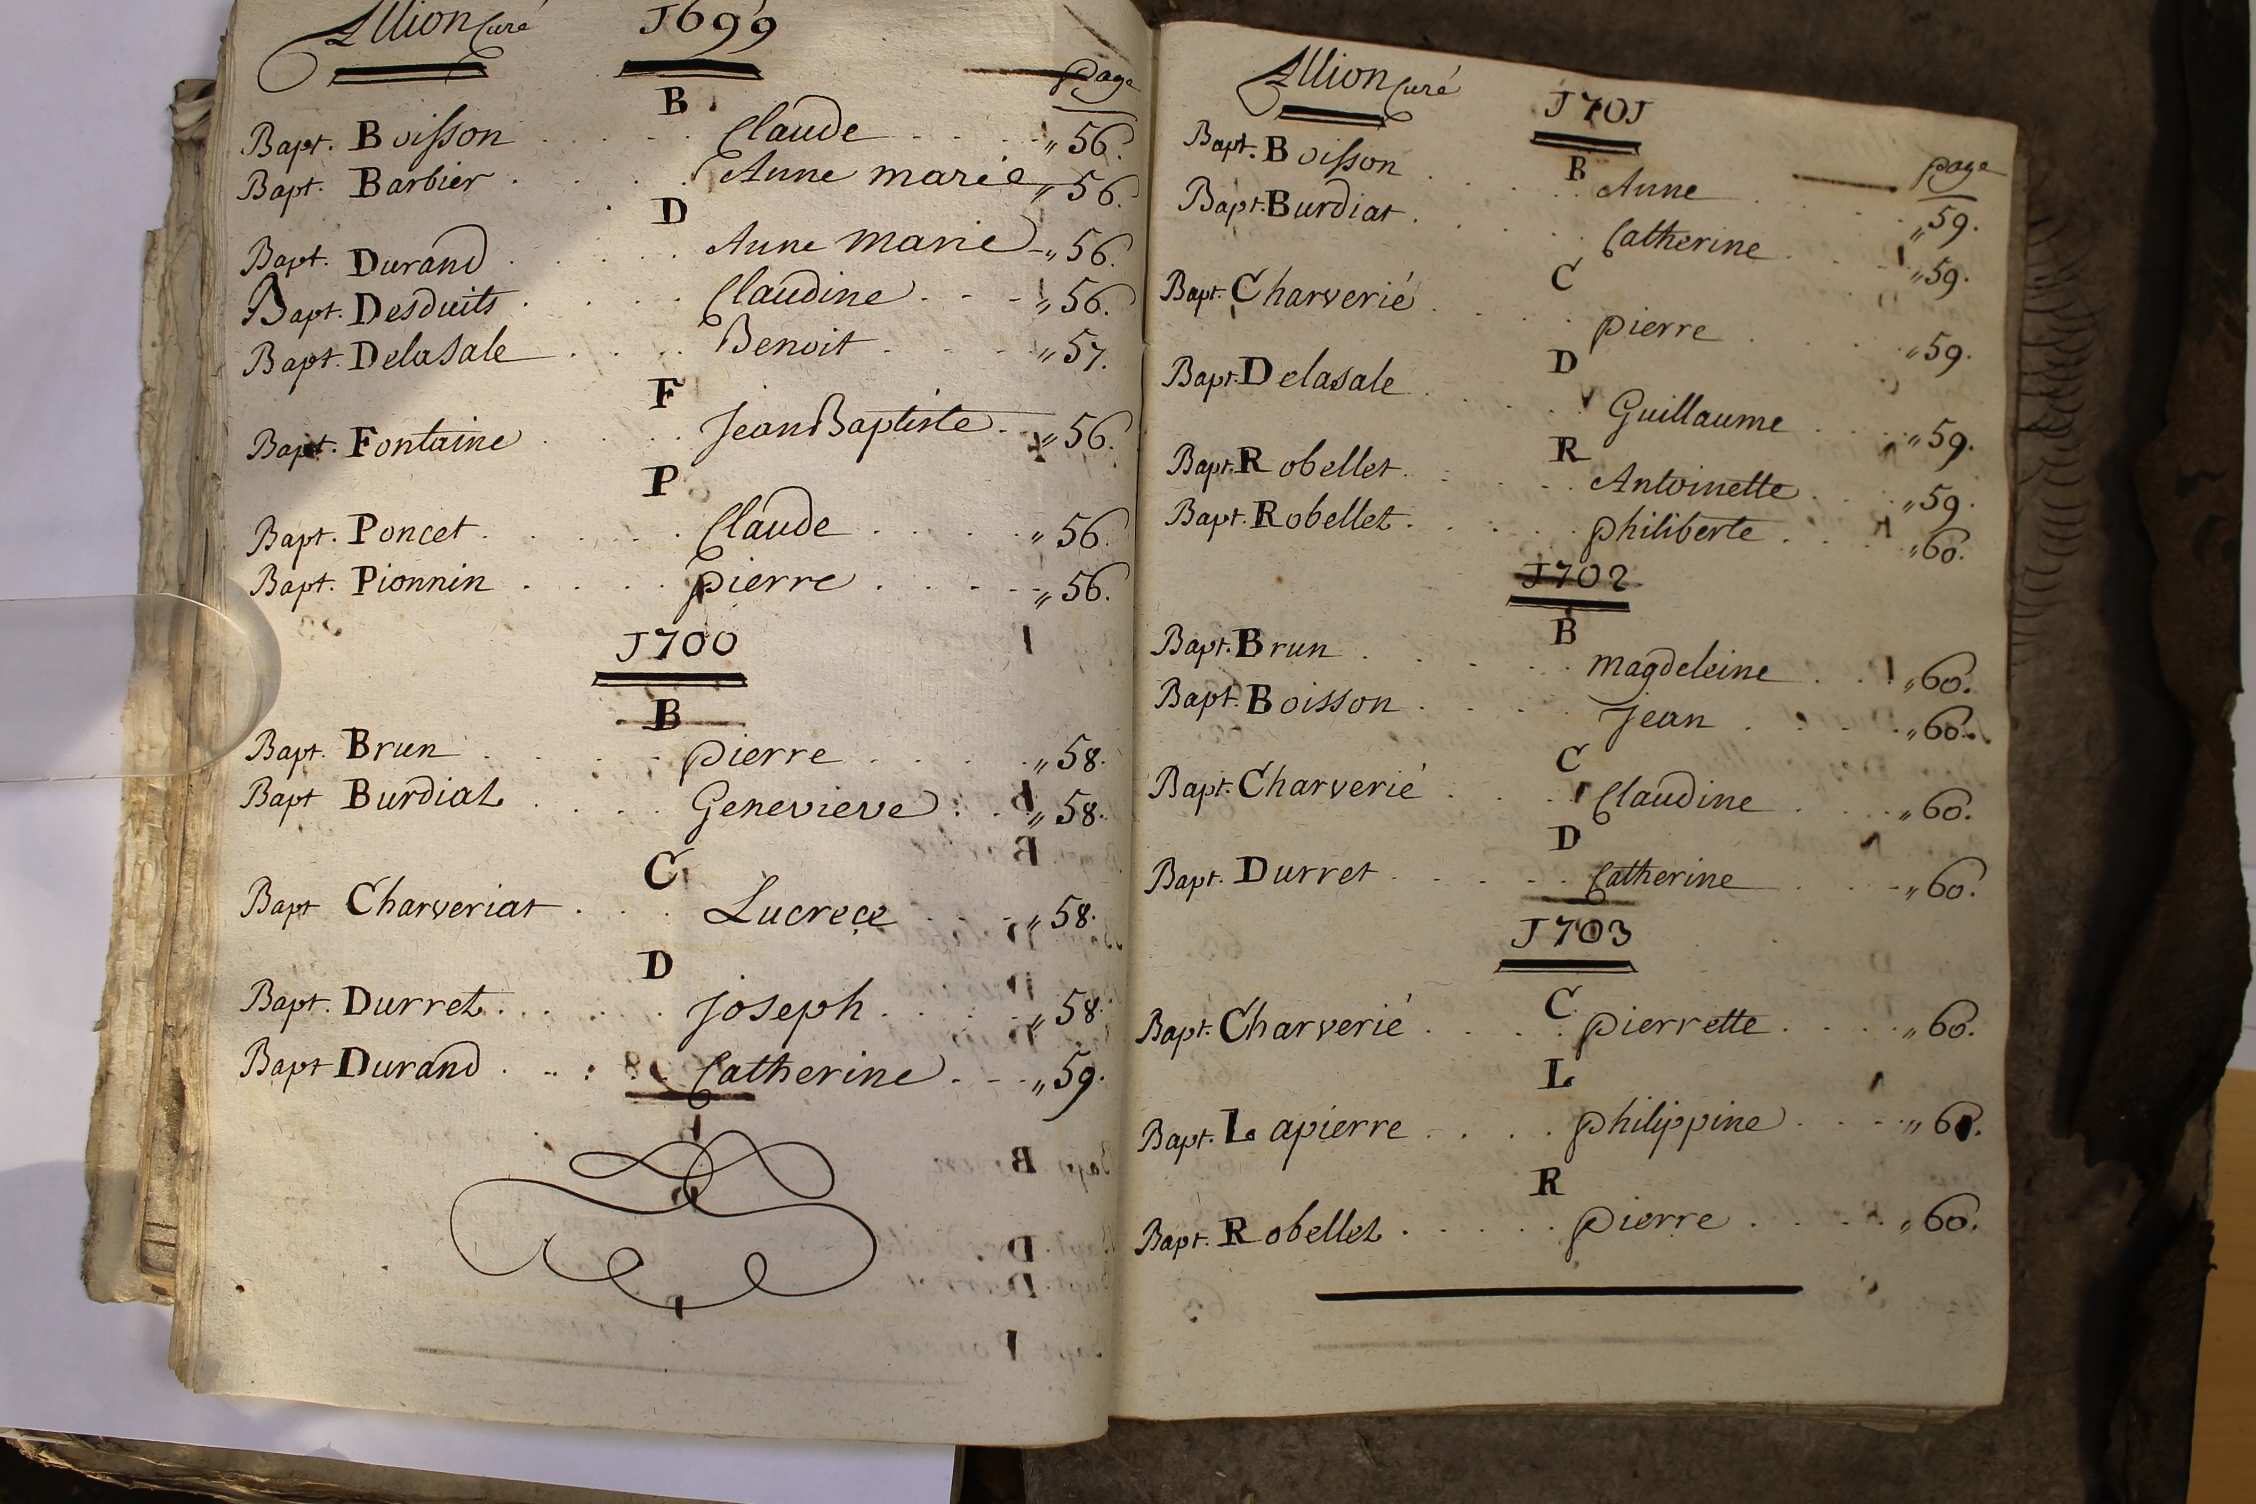 Allion Curé 1699
page
B
Bapt. Boisson . . . . Claude . . . . „ 56.
Bapt. Barbier . . . . Anne marie „ 56.
D
Bapt. Durand . . . . Anne marie „ 56.
Bapt. Desduits . . . . Claudine . . . „ 56.
Bapt. Delasale . . . . Benoit . . . . „ 57.
F
Bapt. Fontaine . . . . Jean Baptiste . „ 56.
P
Bapt. Poncet . . . . . Claude . . . . „ 56.
Bapt. Pionnin . . . . pierre . . . . . „ 56.
1700
B
Bapt. Brun . . . . . pierre . . . . . „ 58.
Bapt Burdiat . . . . Genevieve . . „ 58.
C
Bapt Charveriat . . . Lucrece . . . „ 58.
D
Bapt. Durret . . . . . Joseph . . . . „ 58.
Bapt Durand . . . . Catherine . . . „ 59.
Allion Curé 1701
page
B
Bapt. Boisson . . . . . Anne . . . . „ 59.
Bapt. Burdiat . . . . . Catherine . . . „ 59.
C
Bapt. Charverié . . . . pierre . . . . „ 59.
D
Bapt. Delasale . . . . Guillaume . . . „ 59.
R
Bapt. Robellet . . . . Antoinette . . . „ 59.
Bapt. Robellet . . . . . philiberte . . . „ 60.
1702
B
Bapt. Brun . . . . . magdeleine . . . „ 60.
Bapt. Boisson . . . . Jean . . . . . „ 60.
C
Bapt. Charverié . . . . Claudine . . . . „ 60.
D
Bapt. Durret . . . . . Catherine . . . . „ 60.
1703
C
Bapt. Charverié . . . . pierrette . . . . „ 60.
L
Bapt. Lapierre . . . . philippine . . . . „ 60.
R
Bapt. Robellet . . . . . pierre . . . . . „ 60.